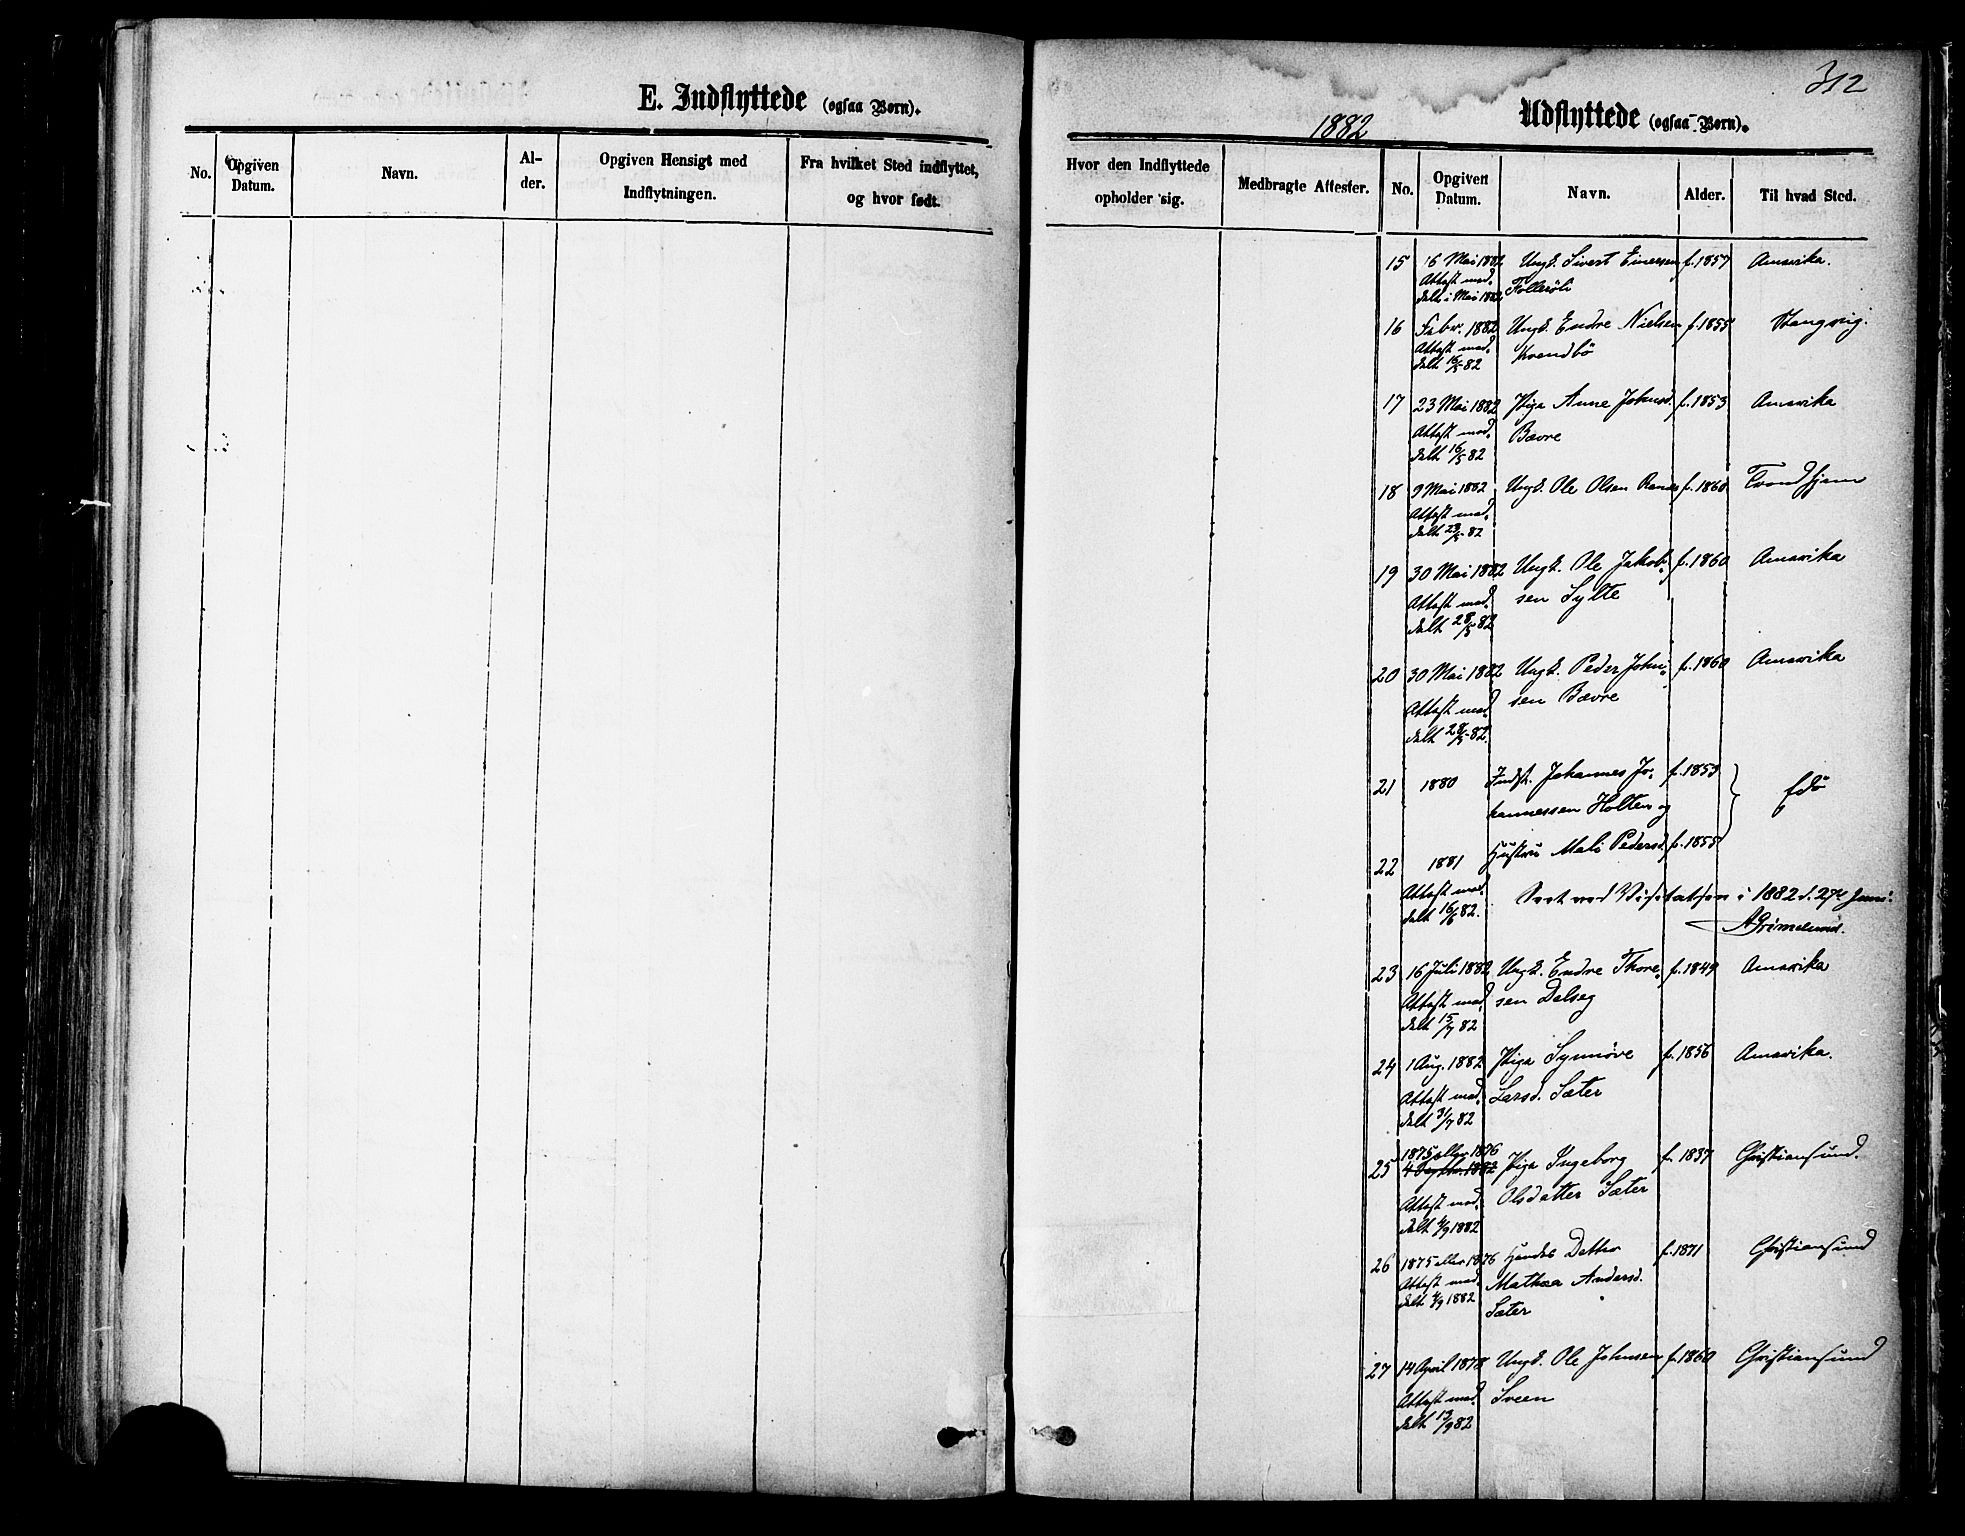 312
E. Indflyttede (ogsaa Børn).
No.
Opgiven Datum.
Navn.
Al-der.
Opgiven Hensigt med Indflytningen.
Fra hvilket Sted indflyttet, og hvor født.
1882
Udflyttede (ogsaa Børn).
Hvor den Indflyttede opholder sig.
Medbragte Attester.
No.
Opgiven Datum.
Navn.
Alder.
Til hvad Sted.
15 16 Mai 1882 Ungk. Sivert Einersen f. 1857 Amerika.
Attest med-
delt i Mai 1882
16 Febr. 1882 Ungk. Endre Nielsen f. 1855 Stangvig.
Attest med- Kvendbö
delt 16/5 82
17 23 Mai 1882 Pige Anne Johnsd. f. 1853 Amerika
Attest med- Bævre
delt 16/5 82
18 9 Mai 1882 Ungk. Ole Olsen f. 1860 Trondhjem
Attest med-
delt 23/5 82
19 30 Mai 1882 Ungk. Ole Jakob- f. 1860 Amerika
Attest med- sen Sylte
delt 28/5 82
20 30 Mai 1882 Ungk. Peder John- f. 1860 Amerika
Attest med- sen Bævre
delt 28/5 82.
21 1880 Indst. Johannes Jo- f. 1853 Edö
hannessen Holten og
22 1881 Hustru Mali Pedersd. f. 1855
Attest med-
delt 16/6 82.
Seet ved Visitatsen i 1882 d. 27de Juni.
A Grimelund.
23 16 Juli 1882 Ungk. Endre Thore- f. 1849 Amerika
Attest med- sen Dalseg
delt 15/7 82
24 1 Aug. 1882 Pige Synnöve f. 1856 Amerika.
Attest med- Larsd. Sæter
delt 31/7 82
1875 eller 1876
25 4 Septbr. 1882 Pige Ingeborg f. 1837 Christiansund.
Attest med- Olsdatter Sæter
delt 4/9 1882
26 1875 eller 1876 Hendes Datter f. 1871 Christiansund
Attest med- Mathea Andersd.
delt 4/9 1882 Sæter
27 14 April 1878 Ungk. Ole Johnsen f. 1860 Christiansund
Attest med- Sveen
delt 13/9 82